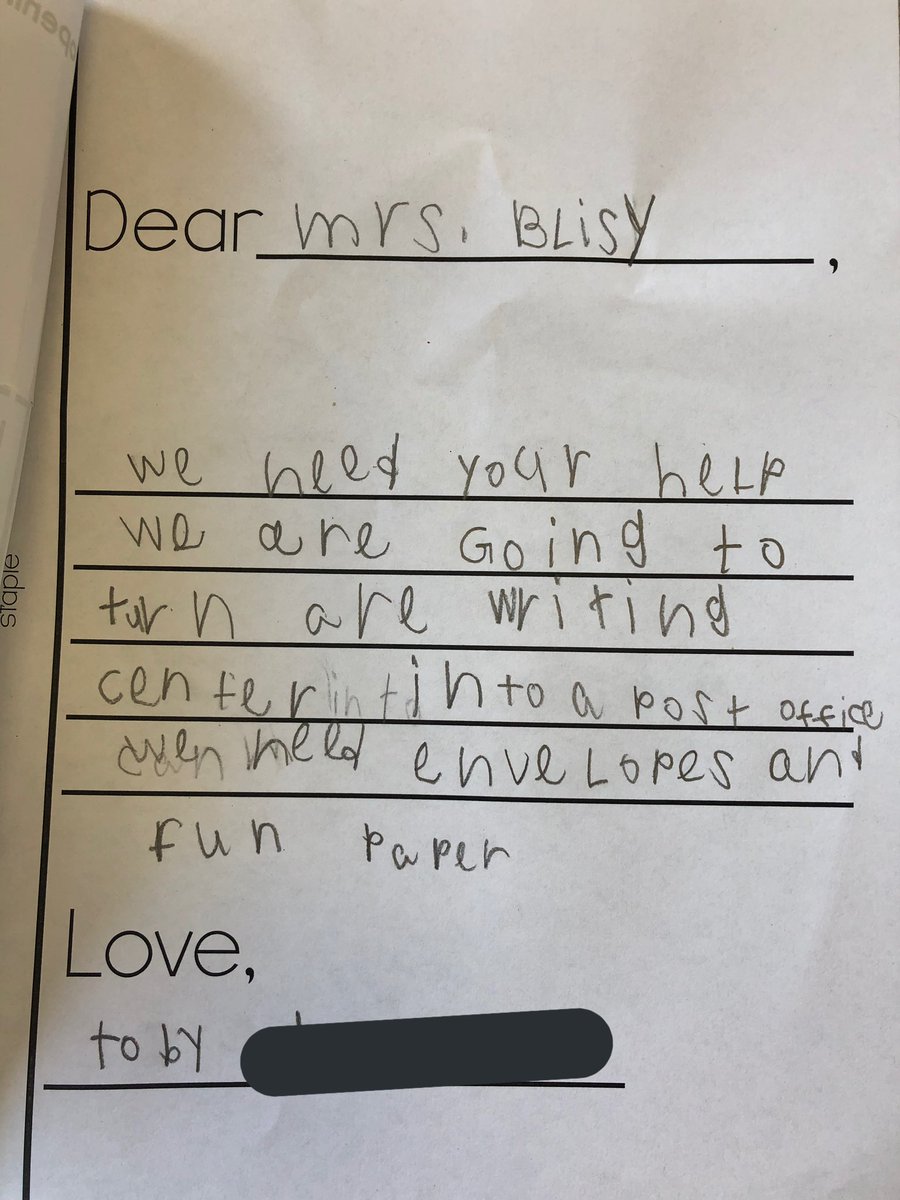 Dear mrs. BLisy,
we need your heLP
we are Going to
turn are writing
center into a post office
need enveLopes and
fun paper
Love,
toby
staple